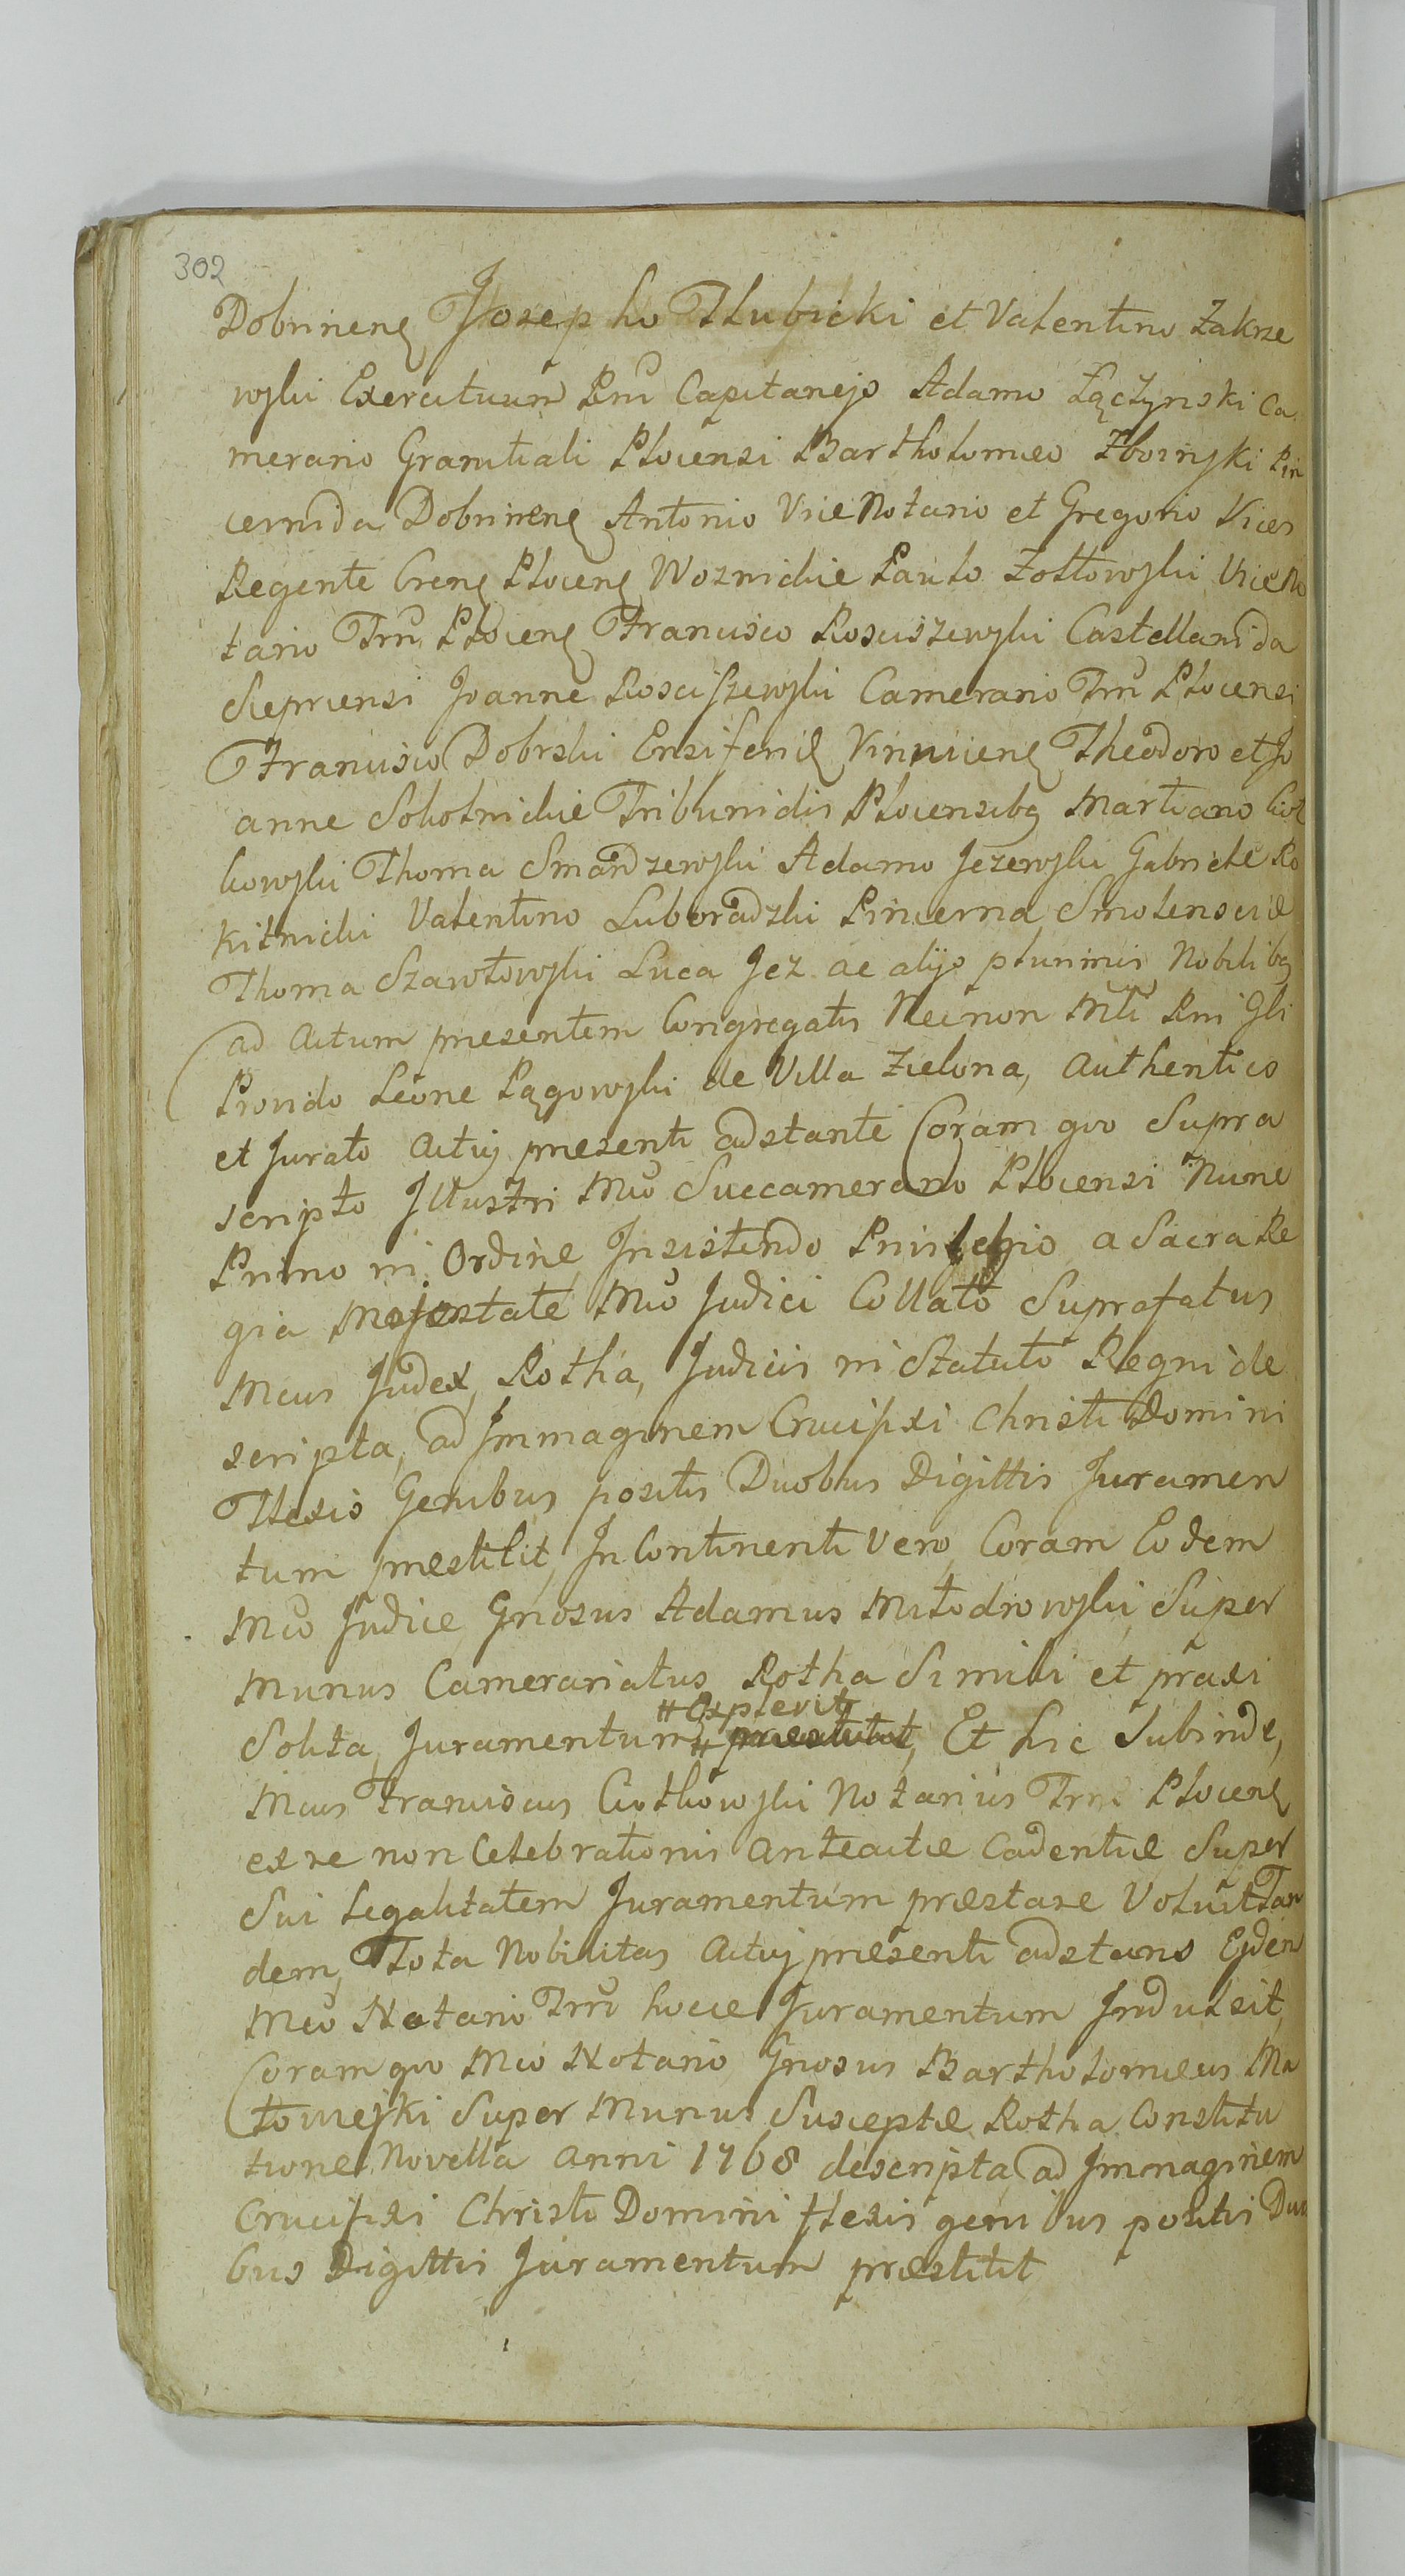 302
Dobrinenẽ Josepho Tłubicki et Valentino Zakrze
wski Exercituum Rni Capitanejs Adamo Łączynski Ca
merario Granitiali Plocensi Bartholomeo Zboinski Pin
cernida Dobrinenẽ Antonio Vice Notario et Gregorio Vices
Regente Crenẽ Plocenẽ Woznickie Paulo Zołtowski Vice No
tario Trrū Plocenẽ Francisco Rosciszewski Castellanida
Sieprcensi Joanne Rosciszewski Camerario Trrū Plocensi
Francisco Dobrski Ensiferiæ Vinnicenẽ Theodoro et Jo
anne Sokolnickie Tribunidis Plocensibq Martiano
kowski Thoma Smardzewski Adamo Jezewski Gabriele Ro
kitnicki Valentino Luboradzki Pincerna Smolensciæ
Thoma Szawłowski Luca Jez ac alijs plurimis Nobilibq
ad Actum præsentem Congregatis Necnon Mtĩ Rni Gli
Provido Leone Pągowski de Villa Zielona, Authentico
et Jurato Actuj præsenti adstante Coram quo Supra
scripto Illustri Mco Succamerario Plocensi Nunc
Primo in Ordine Insistendo Privilegio a Sacra Re
gia Majestate Mco Judici Collato Suprafatus
Mcus Judex, Rotha, Judicis in Statuto Regni de
scripta, ad Immaginem Crucifixi Christi Domini
Flexis Genibus positis Duobus Digittis Juramen
tum præstitit, In Continenti Vero Coram Eodem
Mco Judice Gnosus Adamus Młodrowski, Super
Munus Camerariatus Rotha Simili et praxi
# Explevit
Solita, Juramentum # præstitit, Et hic Subinde,
Mcus Franciscus Ciołkowski Notarius Trrū Plocenẽ
ex re non Celebrationis anteactæ Cadentiæ Super
Sui Legalitatem Juramentum præstare Voluit Tan
dem, Tota Nobilitas Actuj præsenti adstans Ejdem
Mco Notario Trrū hocce Juramentum Indulsit
Coram quo Mco Notario Gnosus Bartholomeus Ma
łowieski Super Munus Susceptæ Rotha Constitu
tione Novella Anni 1768 descripta, ad Immaginem
Crucifixi Christi Domini flexis genibus positis Duo
bus Digittis Juramentum præstitit